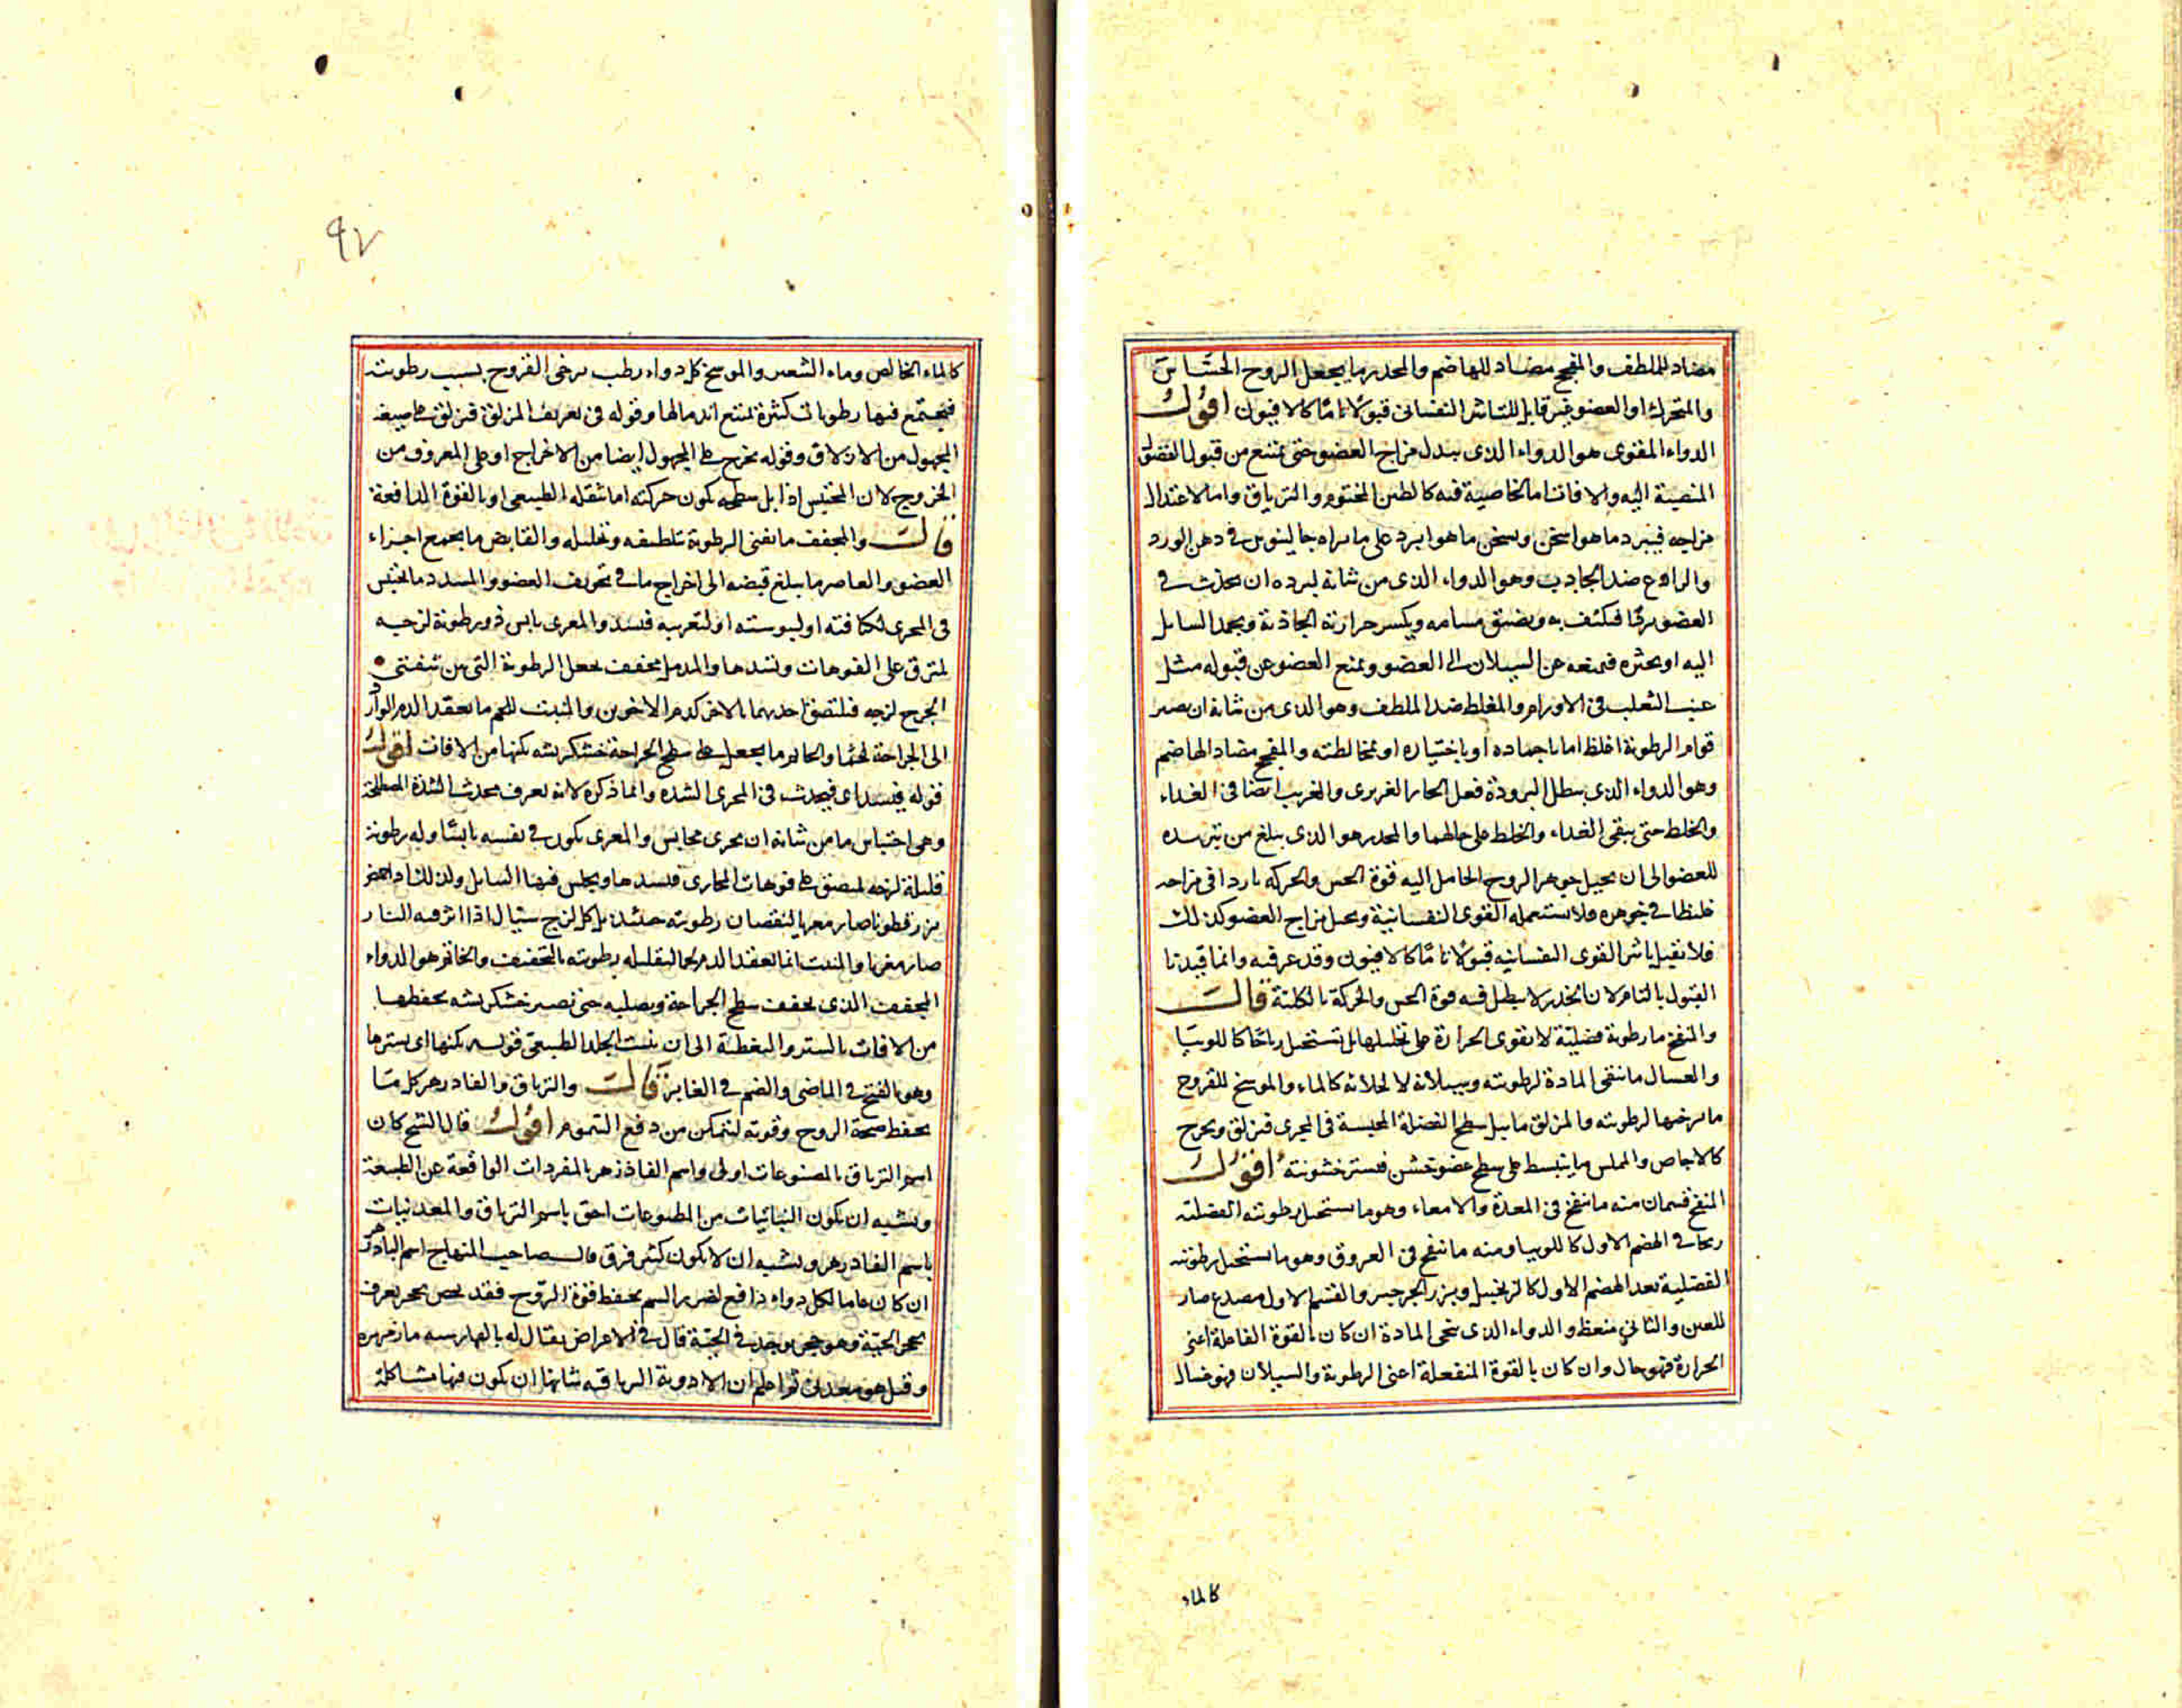 مضاد للملطف والمفجج مضاد للهاضم والمخدر ما يجعل الروح الحساس
والمتحرك او العضو غير قابل للتاثير النفسانى قبولا تاما كالافيون اقول
الدواء المقوى هو الدواء الذى يبدل مزاج العضو حتى يمتنع من قبول الفضول
المنصبة اليه والافات اما لخاصية فيه كالطين المختوم والترياق واما لاعتدال
مزاجه فيبرد ما هو اسخن ويسخن ما هو ابرد على ما يراه جالينوس فى دهن الورد
والرادع ضد الجاذب وهو الدواء الذى من شانه لبرده ان يحدث فى
العضو بردا فيكثف به ويضيق مسامه ويكسر حرارته الجاذبة ويجمد السايل
اليه او يخثره فيمنعه عن السيلان الى العضو ويمنع العضو عن قبوله مثل
عنب الثعلب فى الاورام والمغلظ ضد الملطف وهو الذى من شانه ان يصير
قوام الرطوبة اغلظ اما باجماده او باخثاره او بمخالطته والمفجج مضاد الهاضم
وهو الدواء الذى يبطل البرودة فعل الحار الغريزى والغريب ايضا فى الغذاء
والخلط حتى يبقى الغذاء والخلط على حالهما والمخدر هو الذى يبلغ من تبريده
للعضو الى ان يحيل جوهر الروح الحامل اليه قوة الحس والحركه باردا فى مزاجه
غليظا فى جوهره فلا تستعمله القوى النفسانية ويحيل مزاج العضو كذلك
فلا يقبل تاثير القوى النفسانيه قبولا تاما كالافيون وقد عرفته وانما قيدنا
القبول بالتام لان المخدر لا يبطل فيه قوة الحس والحركة بالكلية قال
والمنفخ ما رطوبته فضلية لا تقوى الحرارة على تحليلها بل تستحيل رياحا كاللوبيا
والغسال ما ينقى المادة لرطوبته وسيلانه لا لجلائه كالماء والموسخ للقروح
ما يرخيها لرطوبته والمزلق ما يبل سطح الفضلة المحتبسة فى المجرى فيزلق ويخرج
كالاجاص والمملس ما ينبسط على سطح عضو خشن فيستر خشونته اقول
المنفخ قسمان منه ما ينفخ فى المعدة والامعاء وهو ما يستحيل رطوبته الفضلية
ريحا فى الهضم الاول كاللوبيا ومنه ما ينفخ فى العروق وهو ما يستحيل رطوبته
الفضلية بعد الهضم الاول كالزنجبيل وبزر الجرجير والقسم الاول مصدع ضار
للعين والثانى منعظ والدواء الذى ينحى المادة ان كان بالقوة الفاعلة اعنى
الحرارة فهو جال وان كان بالقوة المنفعلة اعنى الرطوبة والسيلان فهو غسال
كالماء
٩٧
كالماء الخالص وماء الشعير والموسخ كل دواء رطب يرخى القروح بسبب رطوبته
فيجتمع فيها رطوبات كثيرة يمتنع اندمالها وقوله فى تعريف المزلق فيزلق على صيغه
المجهول من الازلاق وقوله يخرج على المجهول ايضا من الاخراج او على المعروف من
الخروج لان المحتبس اذا بل سطحه يكون حركته اما بثقله الطبيعى او بالقوة الدافعة
قال والمجفف ما يفنى الرطوبة بتلطيفه وتحليله والقابض ما يجمع اجزاء
العضو والعاصر ما يبلغ قبضه الى اخراج ما فى تجويف العضو والمسدد ما يحتبس
فى المجرى لكثافته او ليبوسته او لتغريته فيسد والمغرى يابس ذو رطوبة لزجيه
يلتزق على الفوهات ويسدها والمدمل مجفف يجعل الرطوبة التى بين شفتى
الجرح لزجه فيلتصق احديهما بالاخر كدم الاخوين والمنبت للحم ما يعقد الدم الوارد
الى الجراحة لحما والخاتم ما يجعل على سطح الجراحة خشكريشه يكنها من الافات اقول
قوله فيسد اى فيحدث فى المجرى السدة وانما ذكره لانه تعرف بحدث السدة المصطلحة
وهى احتباس ما من شانه ان يجرى محابس والمغرى يكون فى نفسه يابسا وله رطوبة
قليلة لزجه يلتصق على فوهات المجارى فيسدها ويحبس فيها السايل ولذلك اذا حمض
بزر قطونا صار مغريا لنقصان رطوبته حينئذ بل كل لزج سيال اذا اثر فيه النار
صار مغريا والمنبت انما يعقد الدم لحما لتقليله رطوبته بالتجفيف والخاتم هو الدواء
المجفف الذى يجفف سطح الجراحة ويصلبه حتى يصير خشكريشه يحفظها
من الافات بالستر والتغطية الى ان ينبت الجلد الطبيعى قوله يكنها اى يسترها
وهو بالفتح فى الماضى والضم فى الغابر قال والترياق والفادزهر كل ما
يحفظ صحة الروح وقوته ليتمكن من دفع السموم اقول قال الشيخ كان
اسم الترياق بالمصنوعات اولى واسم الفادزهر بالمفردات الواقعة عن الطبيعة
ويشبه ان يكون النباتيات من المطبوعات احق باسم الترياق والمعدنيات
باسم الفادزهر ويشبه ان لا يكون كثير فرق قال صاحب المنهاج اسم البادزهر
ان كان عاما لكل دواء دافع لضرر السم بحفظ قوة الروح فقد يخص بحجر يعرف
بحجر الحية وهو حجر يوجد فى الحية قال فى الاعراض يقال له بالفارسيه مارمهره
وقيل هو معدنى ثم اعلم ان الادوية الترياقيه شانها ان يكون فيها مشاكلة